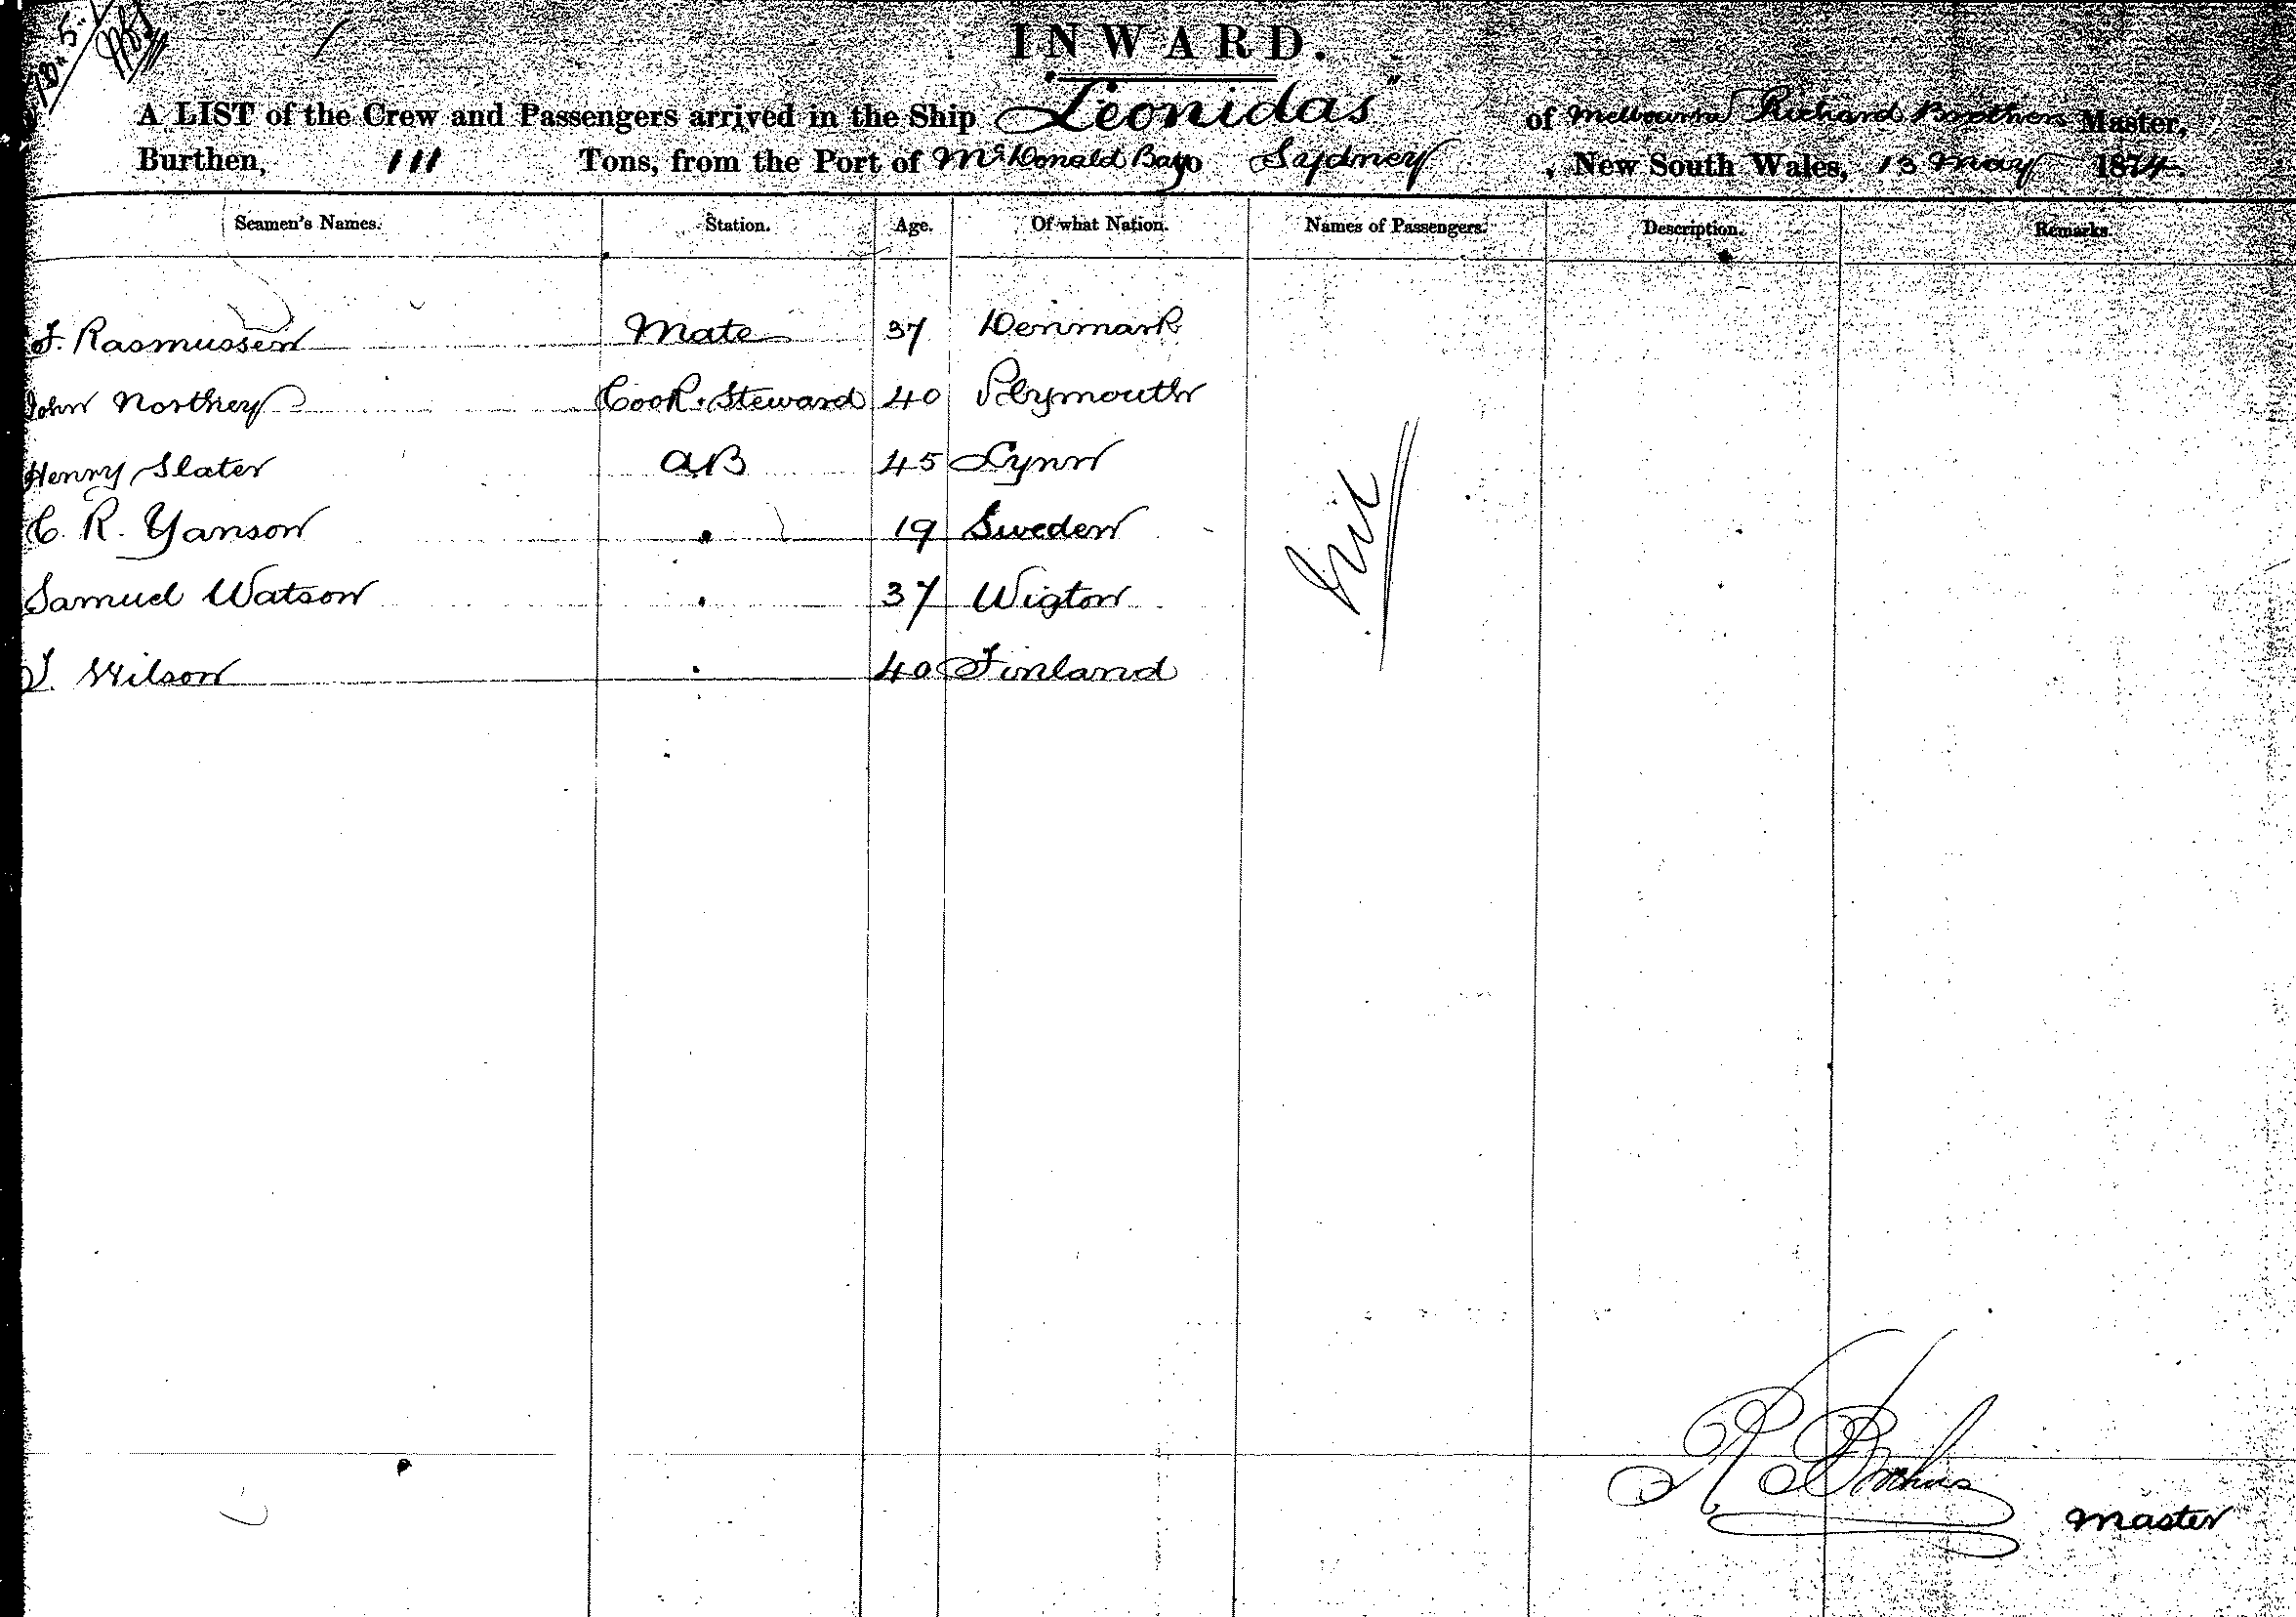 INWARD.
A LIST of the Crew and Passengers arrived in the Ship "Leonidas" of Melbourne Richard Brothers Master,
Burthen, 111 Tons, from the Port of McDonald Bay to Sydney, New South Wales, 13 May 1874.
Seamen's Names. Station. Age. Of what Nation. Names of Passengers. Description. Remarks.
F. Rasmussen Mate 37 Denmark
John Northey Cook. Steward 40 Plymouth
Henry Slater AB 45 Lynn
C. R. Yanson 19 Sweden
Nil
Samuel Watson 37 Wigton
Wilson 40 Finland
R Brothers
Master